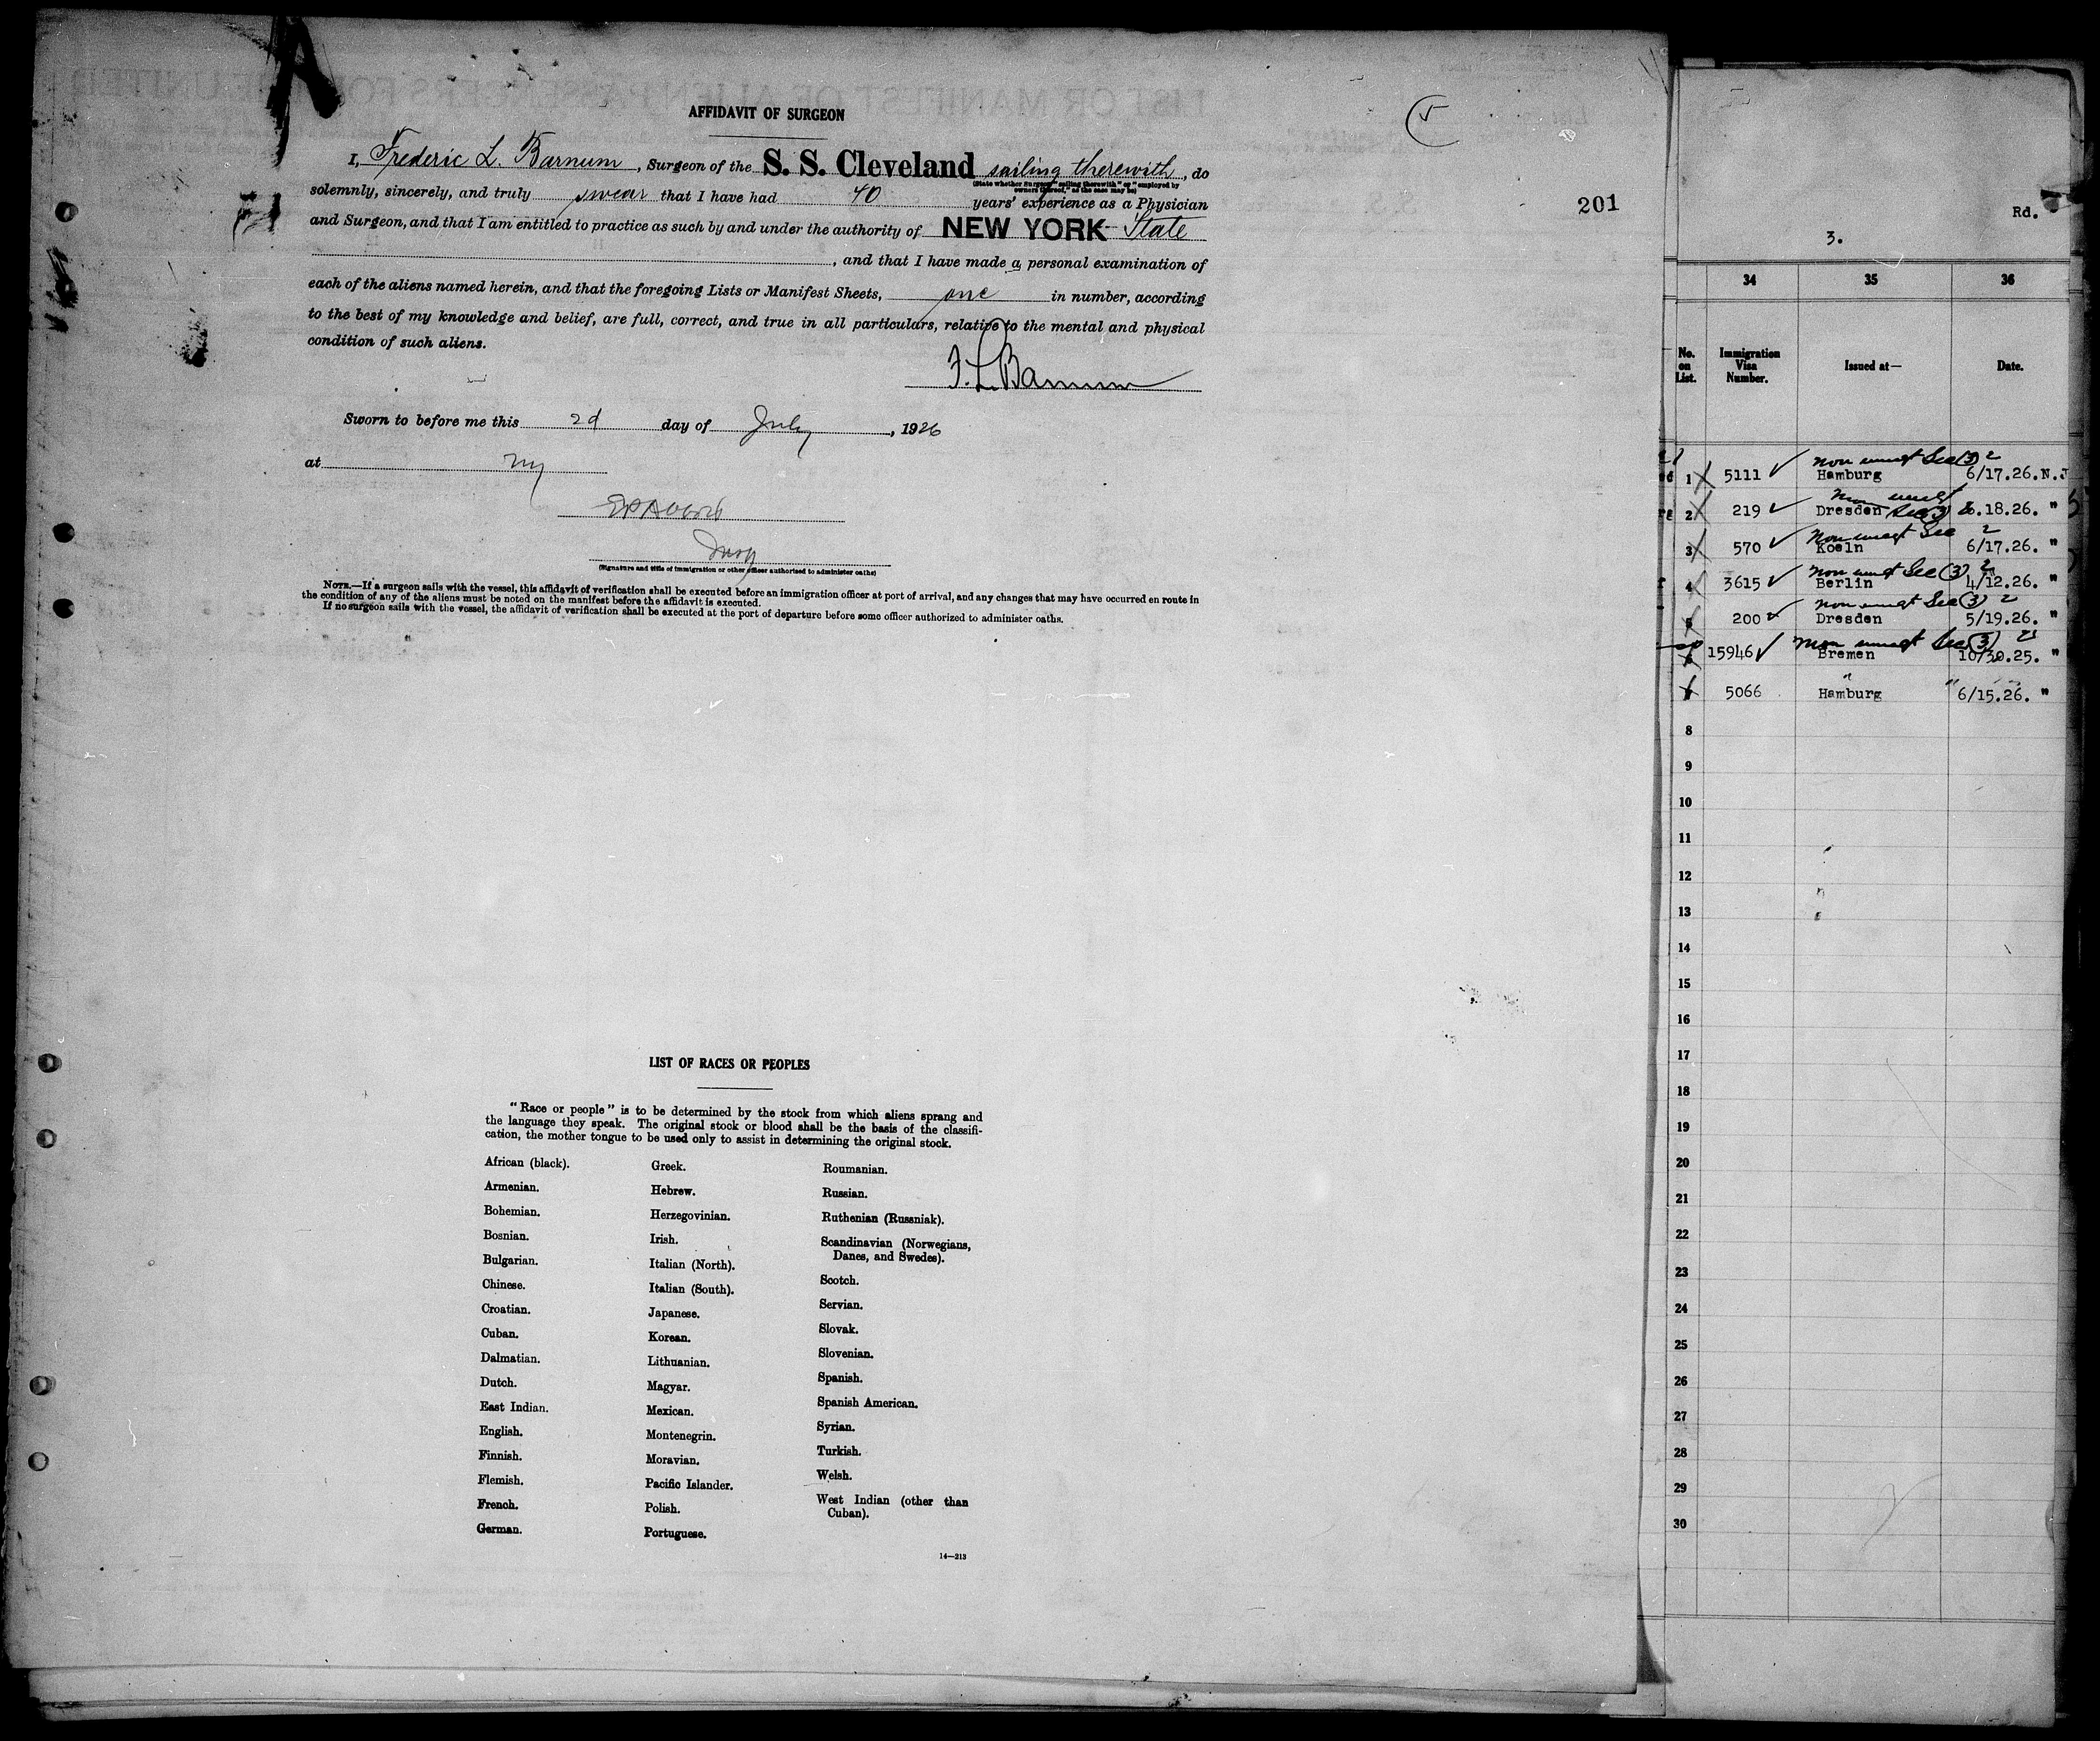 AFFIDAVIT OF SURGEON
I, Frederic L. Barnum, Surgeon of the S. S. Cleveland sailing therewith, do
(State whether Surgeon "sailing therewith" or "employed by owners thereof," as the case may be)
solemnly, sincerely, and truly swear that I have had 40 years' experience as a Physician
and Surgeon, and that I am entitled to practice as such by and under the authority of NEW YORK State
, and that I have made a personal examination of
each of the aliens named herein, and that the foregoing Lists or Manifest Sheets, one in number, according
to the best of my knowledge and belief, are full, correct, and true in all particulars, relative to the mental and physical
condition of such aliens.
F. L. Barnum
Sworn to before me this 2d day of July, 1926
at NY
Insp
(Signature and title of immigration or other officer authorized to administer oaths)
NOTE.—If a surgeon sails with the vessel, this affidavit of verification shall be executed before an immigration officer at port of arrival, and any changes that may have occurred en route in
the condition of any of the aliens must be noted on the manifest before the affidavit is executed.
If no surgeon sails with the vessel, the affidavit of verification shall be executed at the port of departure before some officer authorized to administer oaths.
5
201
LIST OF RACES OR PEOPLES
"Race or people" is to be determined by the stock from which aliens sprang and
the language they speak. The original stock or blood shall be the basis of the classifi-
cation, the mother tongue to be used only to assist in determining the original stock.
African (black).
Armenian.
Bohemian.
Bosnian.
Bulgarian.
Chinese.
Croatian.
Cuban.
Dalmatian.
Dutch.
East Indian.
English.
Finnish.
Flemish.
French.
German.
Greek.
Hebrew.
Herzegovinian.
Irish.
Italian (North).
Italian (South).
Japanese.
Korean.
Lithuanian.
Magyar.
Mexican.
Montenegrin.
Moravian.
Pacific Islander.
Polish.
Portuguese.
Roumanian.
Russian.
Ruthenian (Russniak).
Scandinavian (Norwegians,
Danes, and Swedes).
Scotch.
Servian.
Slovak.
Slovenian.
Spanish.
Spanish American.
Syrian.
Turkish.
Welsh.
West Indian (other than
Cuban).
14—213
Rd.
3.
34 35 36
No. on List. Immigration Visa Number. Issued at— Date.
non immgt Sec (3) 2
1 5111 Hamburg 6/17.26. N.J
non immgt
2 219 Dresden Sec (3) 2 6.18.26. "
non immgt Sec 2
3 570 Koeln 6/17.26. "
non immgt Sec (3) 2
4 3615 Berlin 4/12.26. "
non immgt Sec (3) 2
5 200 Dresden 5/19.26. "
non immgt Sec (3) 2
6 15946 Bremen 10/30.25. "
" "
7 5066 Hamburg 6/15.26. "
8
9
10
11
12
13
14
15
16
17
18
19
20
21
22
23
24
25
26
27
28
29
30